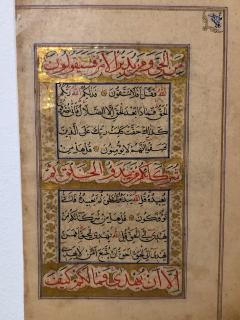 من الحي ومن يدبر الامر فسيقولون
الله فقل افلا تتقون فذلكم الله ربكم
الحق فماذا بعد الحق الا الضلال فانى تصرفون
كذلك حقت كلمت ربك على الذين
فسقوا انهم لا يؤمنون قل هل من
شركائكم من يبدؤا الخلق ثم
يعيده قل الله يبدؤا الخلق ثم يعيده فانى
تؤفكون قل هل من شركائكم من
يهدي الى الحق قل الله يهدي للحق افمن
يهدي الى الحق احق ان يتبع امن لا يهدي
الا ان يهدى فما لكم كيف